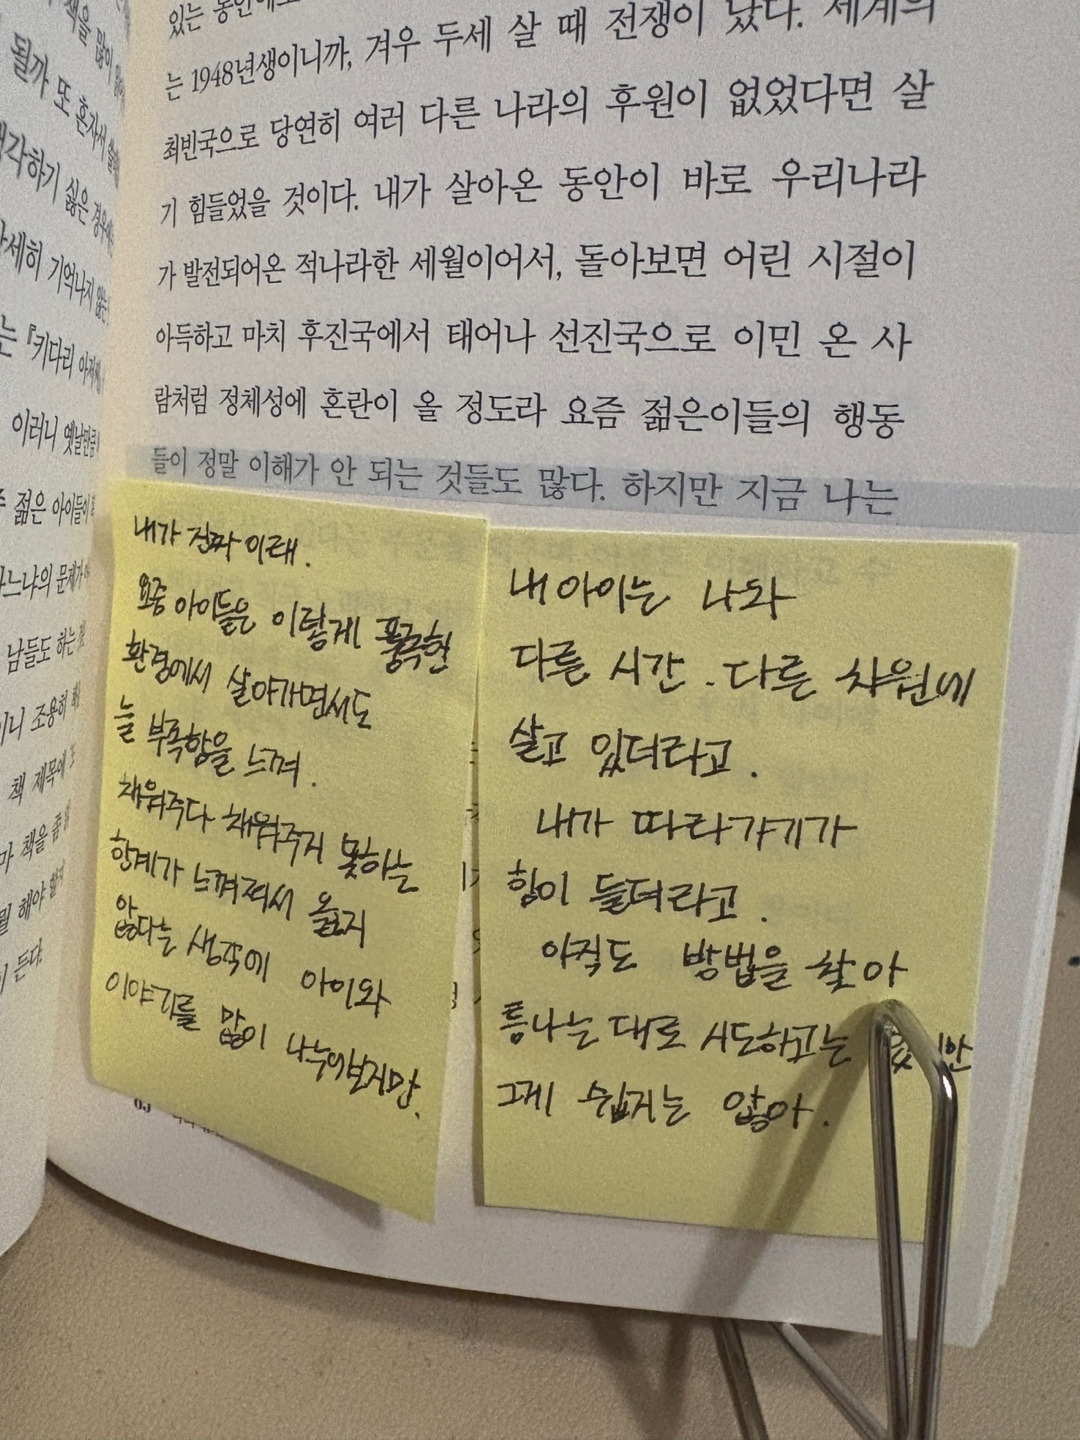 책을 많이
될까 또 혼자서
생각하기 싫은
기억나지 않는
는 『키다리 아저씨
이러니 옛날만큼
젊은 아이들이
느냐의 문제가
남들도 하는
조용히
책 제목에
책을 좀
해야 할지
든다.
있는 동안에도
는 1948년생이니까, 겨우 두세 살 때 전쟁이 났다. 세계의
최빈국으로 당연히 여러 다른 나라의 후원이 없었다면 살
기 힘들었을 것이다. 내가 살아온 동안이 바로 우리나라
가 발전되어온 적나라한 세월이어서, 돌아보면 어린 시절이
아득하고 마치 후진국에서 태어나 선진국으로 이민 온 사
람처럼 정체성에 혼란이 올 정도라 요즘 젊은이들의 행동
들이 정말 이해가 안 되는 것들도 많다. 하지만 지금 나는
내가 진짜 이래.
요즘 아이들은 이렇게 풍족한
환경에서 살아가면서도
늘 부족함을 느껴.
채워주다 채워주지 못하는
한계가 느껴져서 옳지
않다는 생각에 아이와
이야기를 많이 나누어보지만.
내 아이는 나와
다른 시간. 다른 차원에
살고 있더라고.
내가 따라가기가
힘이 들더라고.
아직도 방법을 찾아
틈나는 대로 시도하고는
그게 쉽지는 않아.